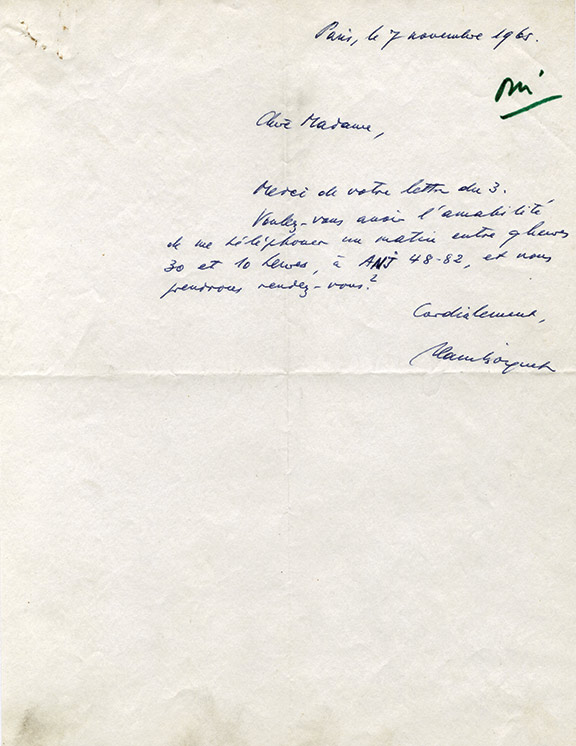 Paris, le 7 novembre 1965.
oui
Chère Madame,
Merci de votre lettre du 3.
Voulez-vous avoir l'amabilité
de me téléphoner un matin entre 9 heures
30 et 10 heures, à ANJ 48-82, et nous
prendrons rendez-vous?
Cordialement,
Alain Bosquet